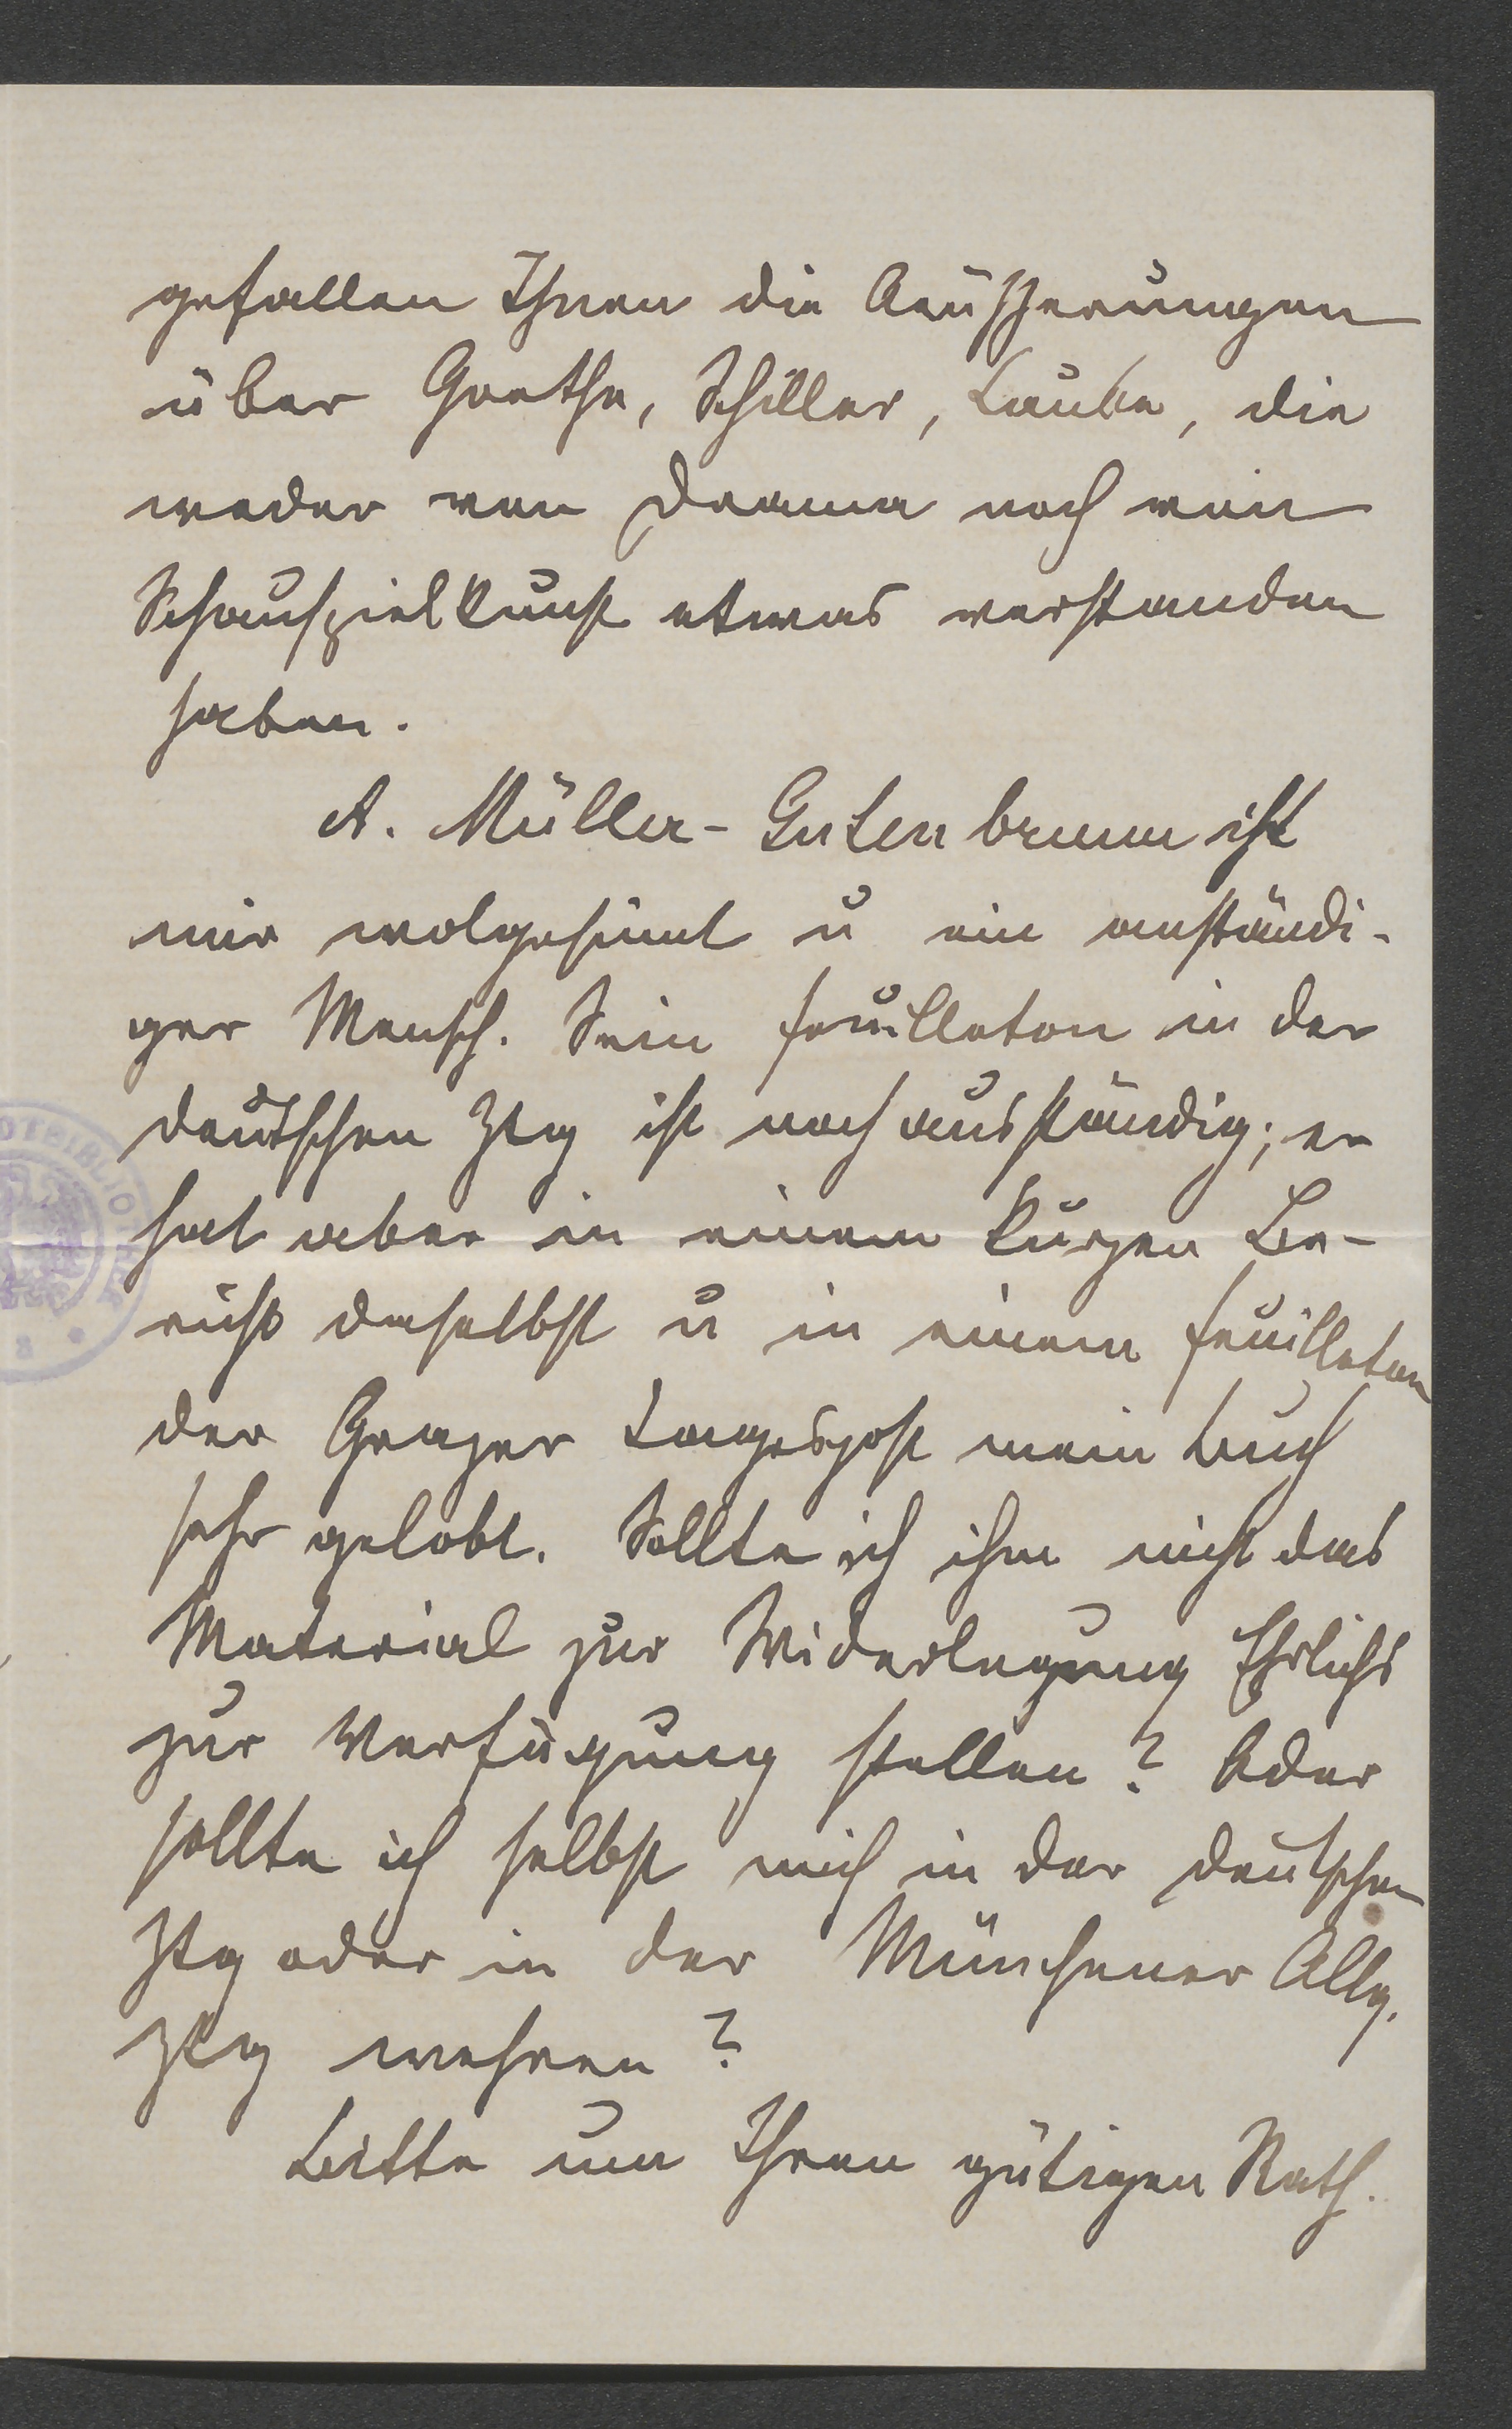 gefallen Ihnen die Aeußerungen
über Goethe, Schiller, Laube, die
weder von Drama noch von
Schauspielkunst etwas verstanden
haben.
A. Müller-Gutenbrunn ist
mir wolgesinnt u ein anständi-
ger Mensch. Sein Feuilleton in der
deutschen Ztg ist noch ausständig; er
hat aber in einem kurzen Be-
richt daselbst u in einem Feuilleton
der Grazer Tagespost mein Buch
sehr gelobt. Sollte ich ihm nicht das
Material zur Widerlegung Ehrlichs
zur Verfügung stellen? Oder
sollte ich selbst mich in der deutschen
Ztg oder in der Münchener Allg.
Ztg wehren?
Bitte um Ihren gütigen Rath.